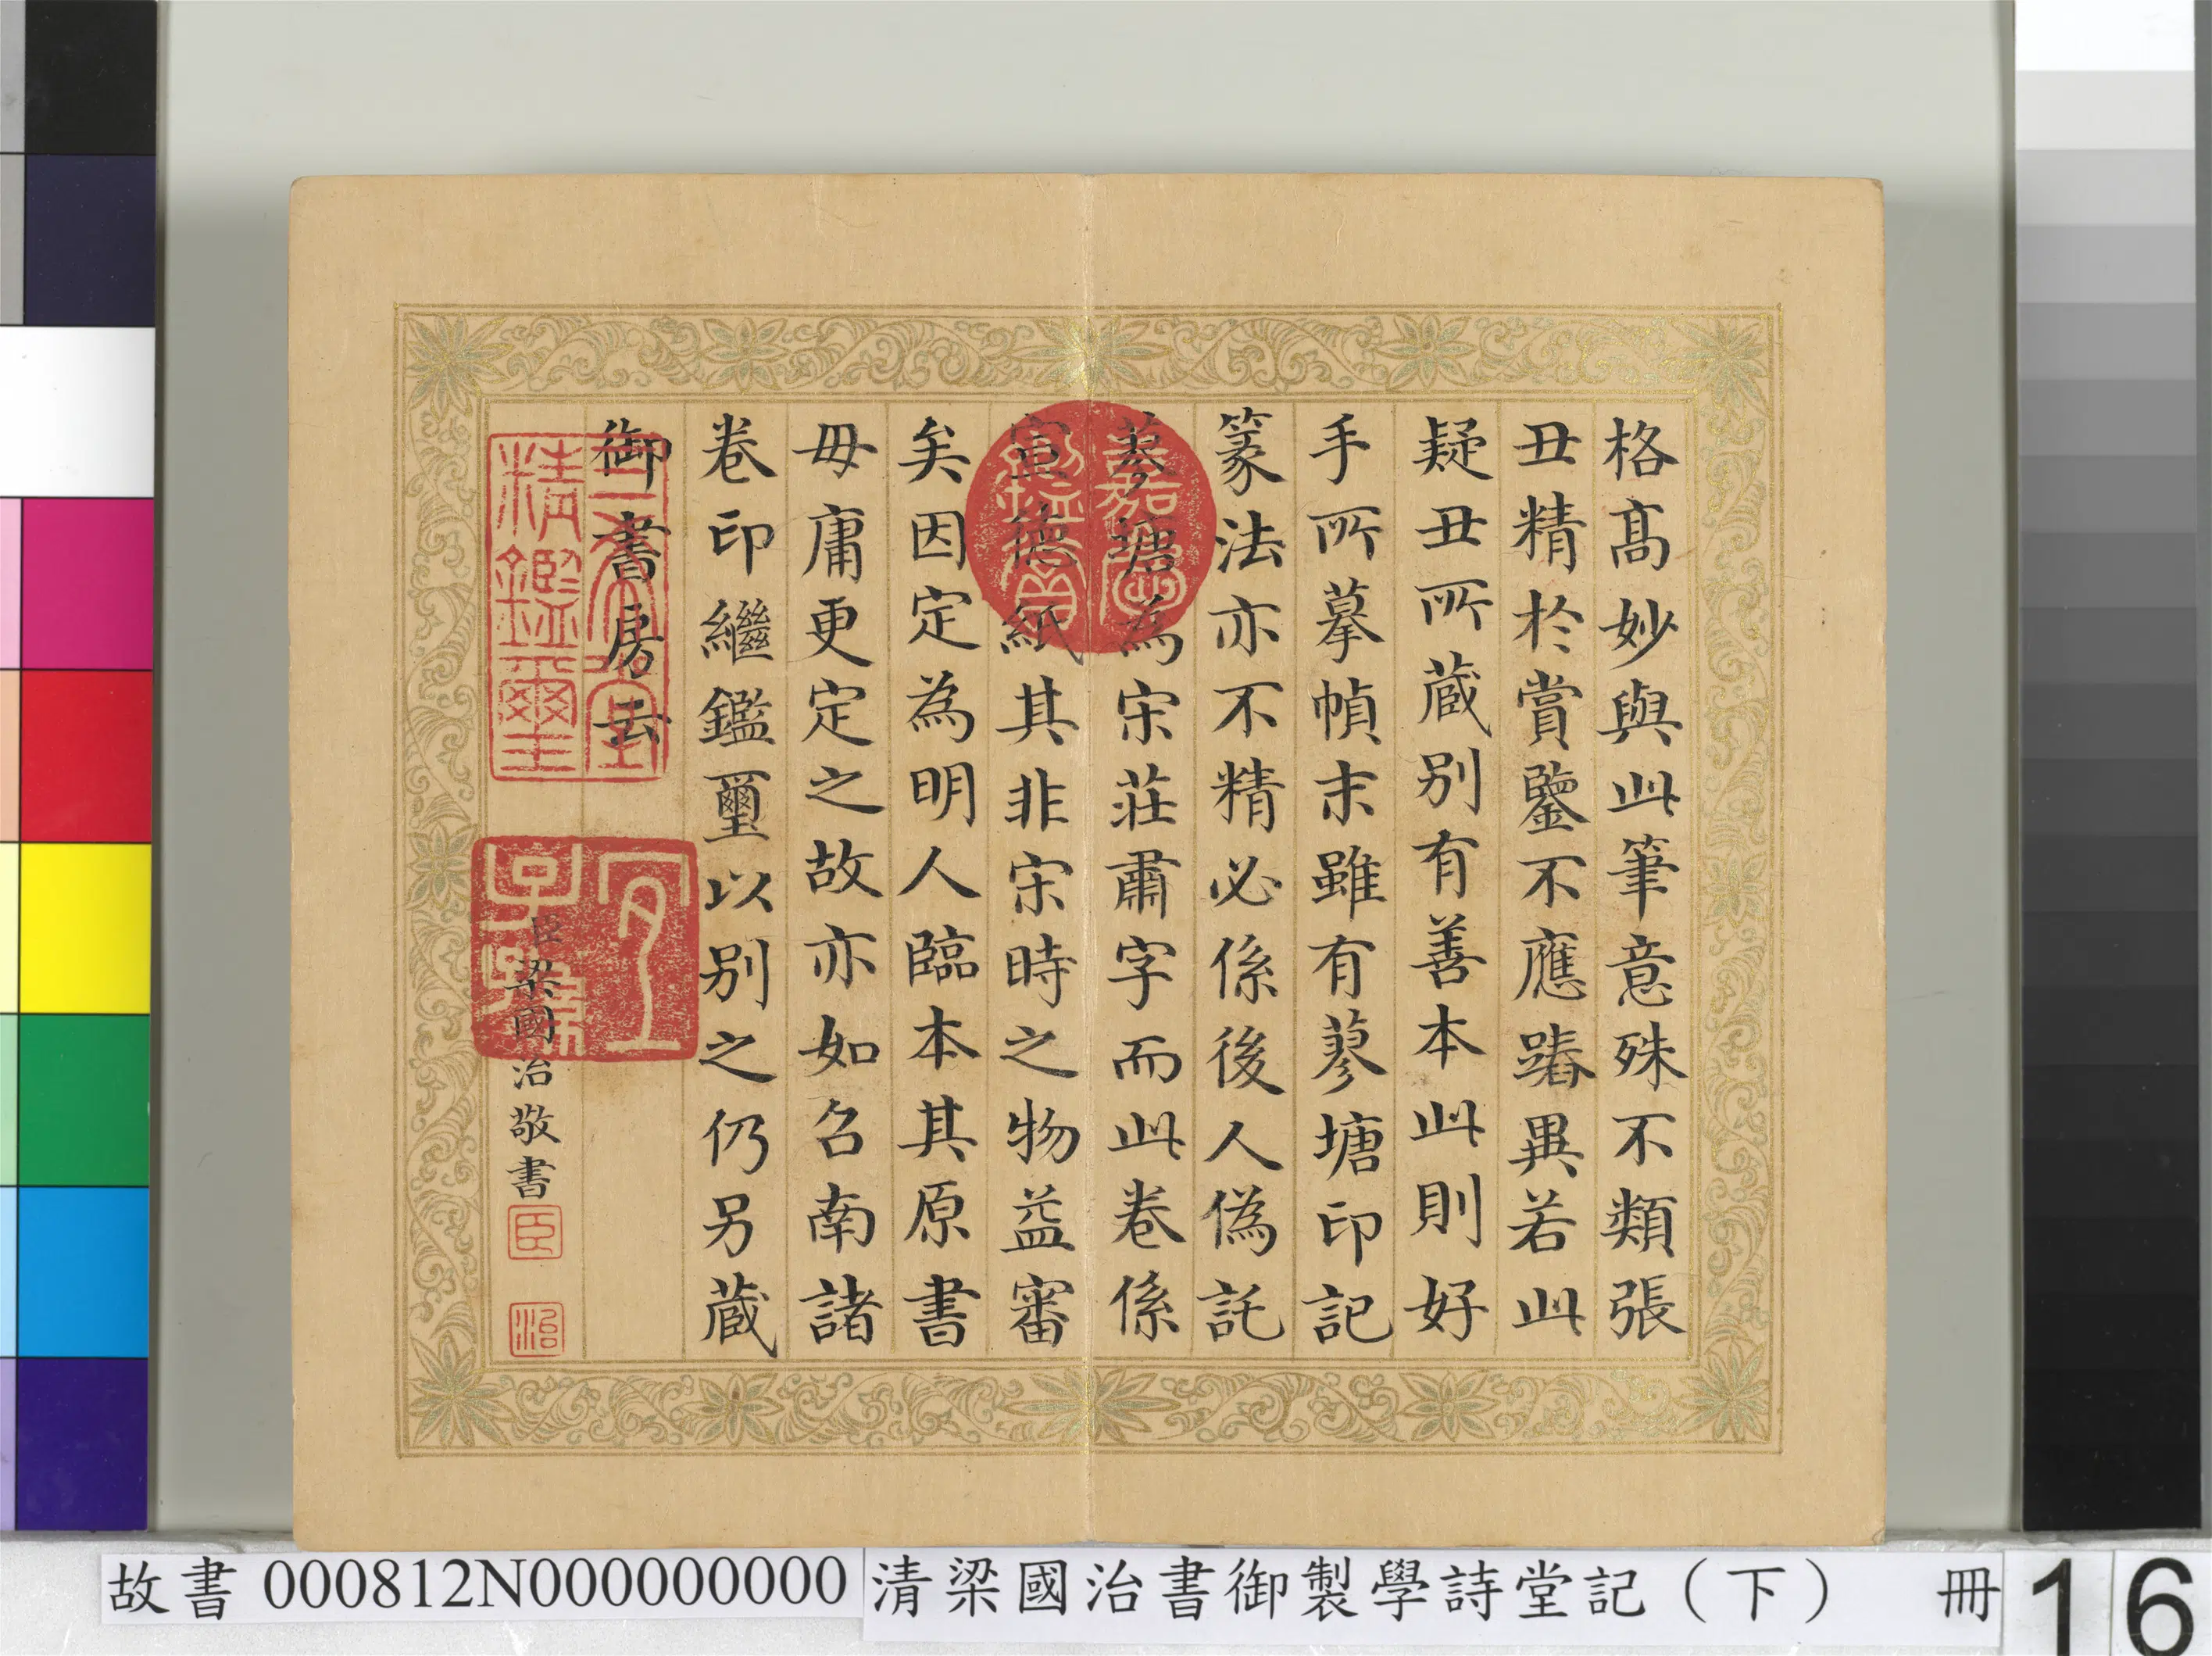 格髙妙與此筆意殊不類張
丑精於賞鑒不應踳異若此
疑丑所蔵别有善本此則好
手所摹幀末雖有蓼塘印記
篆法亦不精必係後人偽託
蓼塘為宋莊肅字而此卷係
宣德紙其非宋時之物益審
矣因定為明人臨本其原書
毋庸更定之故亦如召南諸
卷印繼鑑璽以别之仍另蔵
御書房云
臣梁國治敬書
臣
治
嘉慶御覽之寶
三希堂精鑑璽
宜子孫
故書 000812N000000000
清梁國治書御製學詩堂記（下） 冊
16